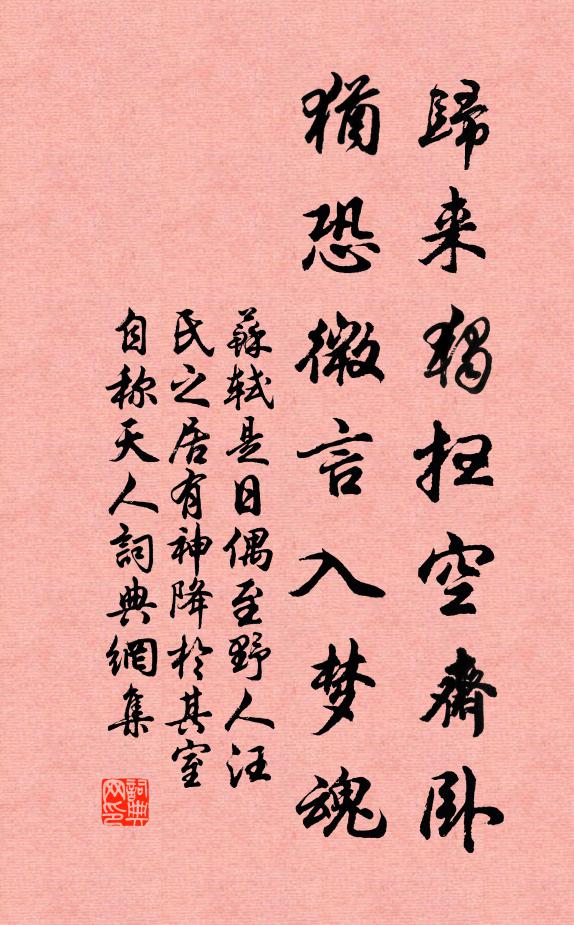 歸来獨扫空齋卧
猶恐微言入梦魂
蘇轼是日偶至野人汪
氏之居有神降於其室
自称天人詞典網集
詞典網印